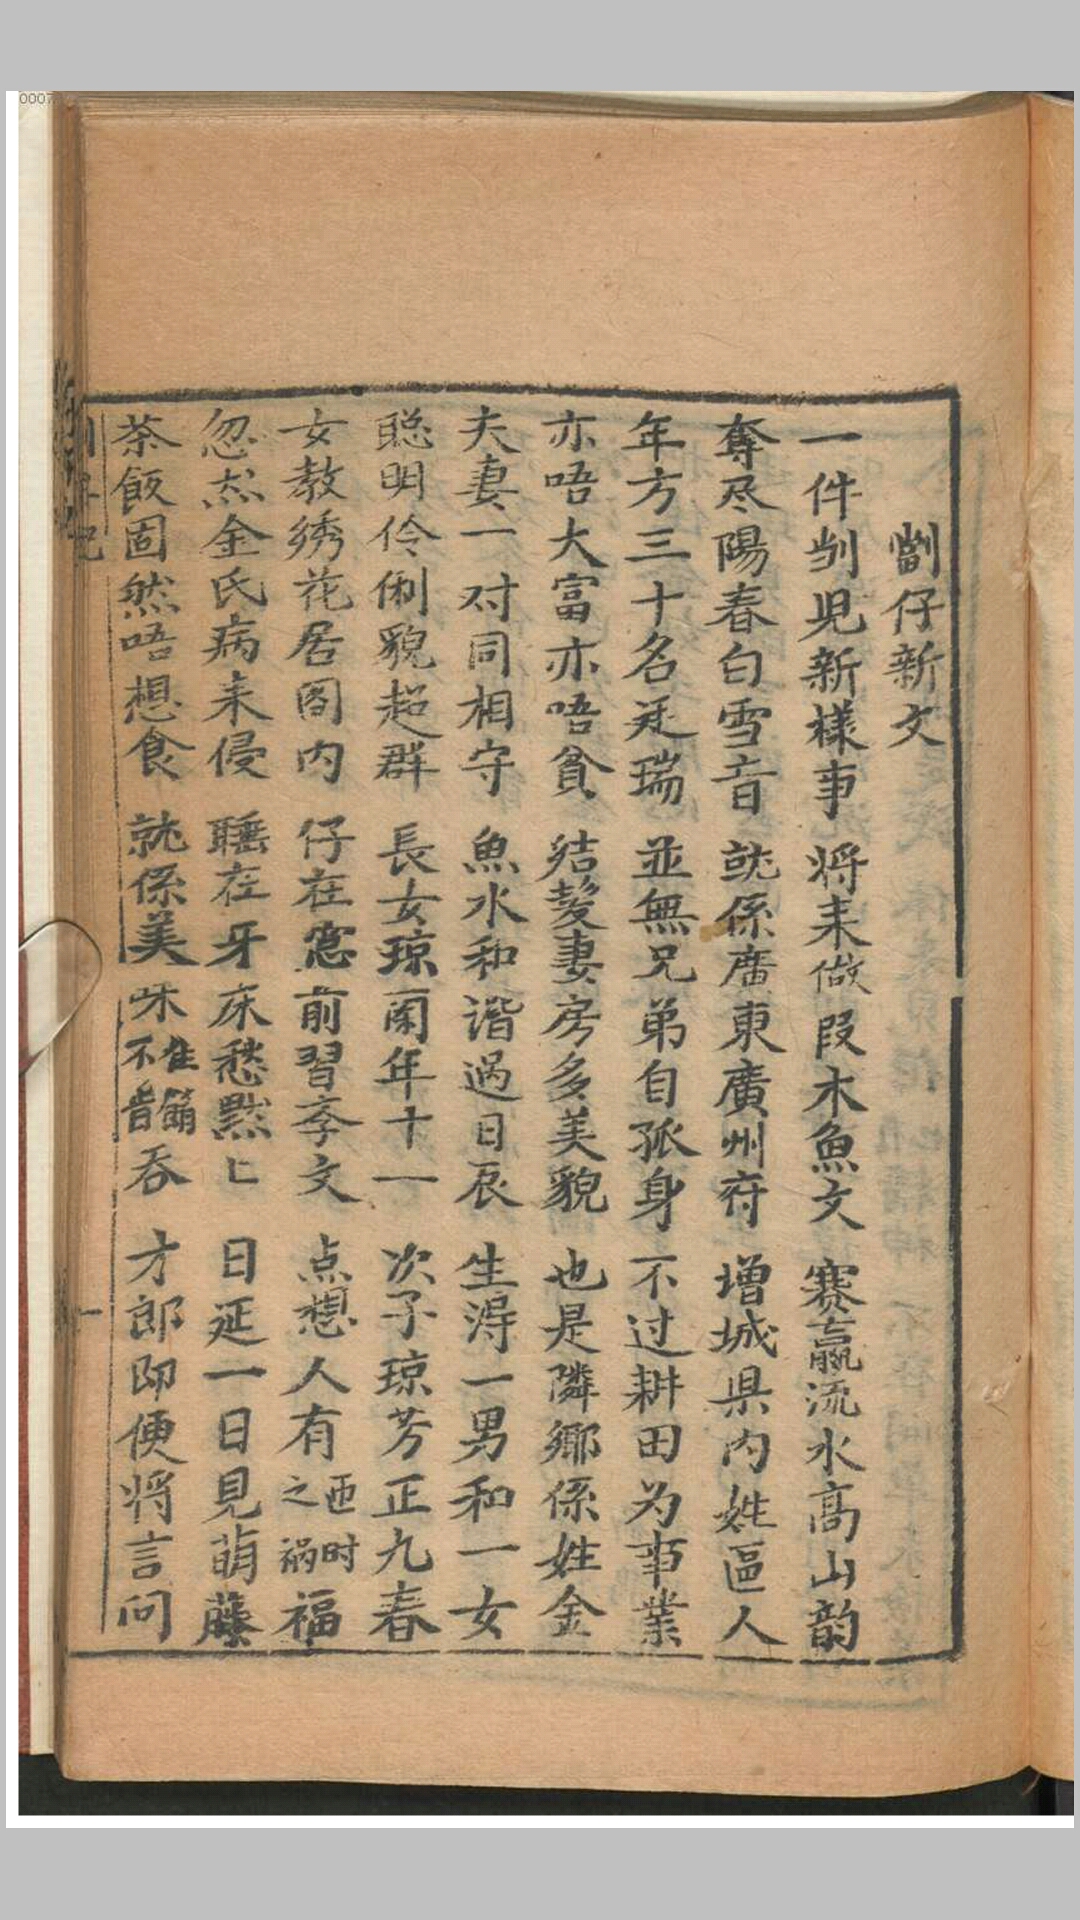 劏仔新文
一件刣児新様事 将耒做叚木魚文 赛嬴流水高山韵
奪尽陽春白雪音 就係廣東廣州府 增城県内姓區人
年方三十名廷瑞 並無兄弟自孤身 不过耕田为事業
亦唔大富亦唔貧 结髪妻房多美貌 也是隣郷係姓金
夫妻一对同相守 魚水和谐過日辰 生得一男和一女
聡明伶俐貌超群 長女琼闌年十一 次子琼芳正九春
女教绣花居阁内 仔在窓前習斈文 点想人有时之祸福
忽然金氏病耒侵 睡在牙床愁黙匕 日延一日見萌藤
茶飯固然唔想食 就係美味不肯吞 才郎即便将言问
0007
一